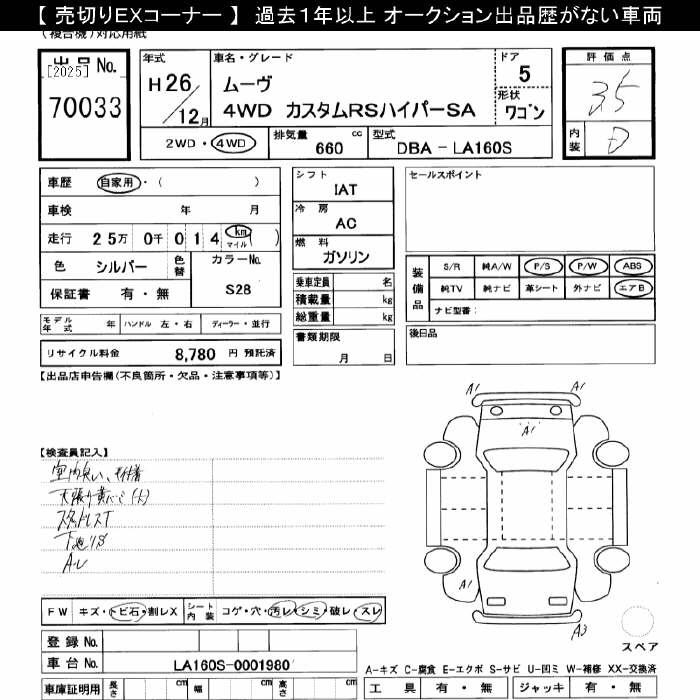 【 売切りEXコーナー 】 過去1年以上 オークション出品歴がない車両
(複合機)対応用紙
出品 No.
[2025]
70033
年式
H26/12月
車名・グレード
ムーヴ
4WD カスタムRSハイパーSA
ドア
5
形状
ワゴン
2WD・4WD
排気量 cc
660
型式
DBA - LA160S
評価点
3.5
内装
D
車歴 自家用・( )
車検 年 月
走行 25万 0千 014 km マイル ( )
色 シルバー 色替
カラーNo.
S28
保証書 有・無
シフト
IAT
冷房
AC
燃料
ガソリン
乗車定員 名
積載量 kg
総重量 kg
書類期限
月 日
セールスポイント
装備品
S/R 純A/W P/S P/W ABS
純TV 純ナビ 革シート 外ナビ エアB
ナビ型番:
後日品
モデル年式 年 ハンドル 左・右 ディーラー・並行
リサイクル料金 8,780 円 預託済
【出品店申告欄(不良箇所・欠品・注意事項等)】
【検査員記入】
スタットレスT
A1 A1
A1
A1
A3
スペア
FW キズ・トビ石・割レX シート内装 コゲ・穴・汚レ・シミ・破レ・スレ
登録 No.
車台 No. LA160S-0001980
車庫証明用 長さ cm 幅 cm 高さ cm
A-キズ C-腐食 E-エクボ S-サビ U-凹ミ W-補修 XX-交換済
工具 有・無 ジャッキ 有・無